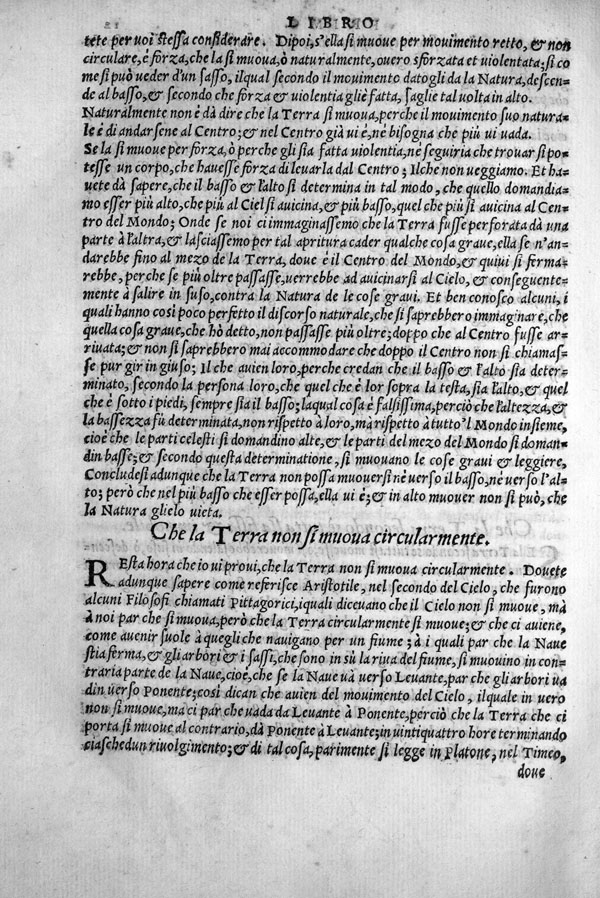 LIBRO
tete per voi stessa considerare. Dipoi, s'ella si muoue per mouimento retto, & non
circulare, è forza, che la si muoua, ò naturalmente, ouero sforzata et violentata: si co
me si può veder d'un sasso, ilqual secondo il mouimento datogli da la Natura, descen-
de al basso, & secondo che forza & violentia gliè fatta, saglie tal volta in alto.
Naturalmente non è dà dire che la Terra si muoua, perche il mouimento suo natura-
le é di andarsene al Centro; & nel Centro già ui é, né bisogna che più ui uada.
Se la si muoue per forza, ò perche gli sia fatta uiolentia, ne seguiria che trouar si po-
tesse un corpo, che hauesse forza di leuarla dal Centro; Ilche non ueggiamo. Et ha-
uete dà sapere, che il basso & l'alto si determina in tal modo, che quello domandia-
mo esser più alto, che più al Ciel si auicina, & più basso, quel che più si auicina al Cen-
tro del Mondo; Onde se noi ci immaginassemo che la Terra fusse perforata dà una
parte à l'altra, & lasciassemo per tal apritura cader qualche cosa graue, ella se n'an-
darebbe fino al mezo de la Terra, doue é il Centro del Mondo, & quiui si ferma-
rebbe, perche se più oltre passasse, uerrebbe ad auicinarsi al Cielo, & conseguente-
mente à salire in suso, contra la Natura de le cose graui. Et ben conosco alcuni, i
quali hanno così poco perfetto il discorso naturale, che si saprebbero immaginare, che
quella cosa graue, che hò detto, non passasse più oltre; doppo che al Centro fusse ar-
riuata; & non si saprebbero mai accommodare che doppo il Centro non si chiamas-
se pur gir in giuso; Il che auien loro, perche credan che il basso & l'alto sia deter-
minato, secondo la persona loro, che quel che è lor sopra la testa, sia l'alto, & quel
che è sotto i piedi, sempre sia il basso; laqual cosa è falsissima, perciò che l'altezza, &
la bassezza fù determinata, non rispetto à loro, mà rispetto à tutto 'l Mondo insieme,
cioè che le parti celesti si domandino alte, & le parti del mezo del Mondo si doman-
din basse; & secondo questa determinatione, si muouano le cose graui & leggiere,
Concludesi adunque che la Terra non possa muouersi nè uerso il basso, nè uerso l'al-
to; però che nel più basso che esser possa, ella ui è; & in alto muouer non si può, che
la Natura glielo uieta.
Che la Terra non si muoua circularmente.
REsta hora che io ui proui, che la Terra non si muoua circularmente. Douete
adunque sapere come referisce Aristotile, nel secondo del Cielo, che furono
alcuni Filosofi chiamati Pittagorici, iquali diceuano che il Cielo non si muoue, mà
à noi par che si muoua, però che la Terra circularmente si muoue; & che ci auiene,
come auenir suole à quegli che nauigano per un fiume; à i quali par che la Naue
stia ferma, & gli arbori & i sassi, che sono in sù la riua del fiume, si muouino in con-
traria parte de la Naue, cioè, che se la Naue uà uerso Leuante, par che gli arbori ua
din uerso Ponente; così dican che auien del mouimento del Cielo, ilquale in uero
non si muoue, ma ci par che uada da Leuante à Ponente, perciò che la Terra che ci
porta si muoue al contrario, dà Ponente à Leuante; in uintiquattro hore terminando
ciaschedun riuolgimento; & di tal cosa, parimente si legge in Platone, nel Timeo,
doue